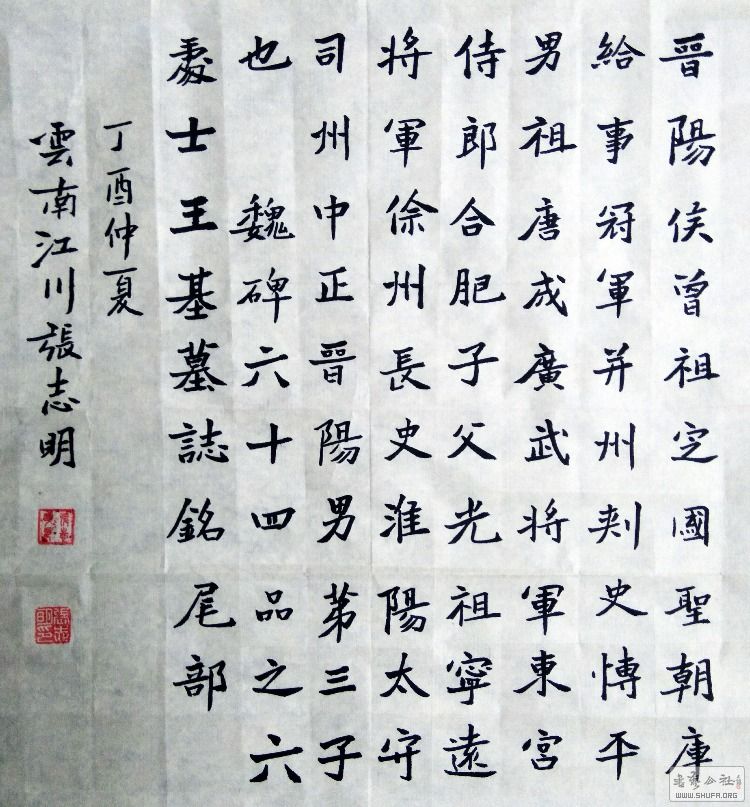 晉陽侯曾祖定國聖朝庫
給事冠軍并州刾史愽平
男祖唐成廣武將軍東宮
侍郎合肥子父光祖寧遠
將軍徐州長史淮陽太守
司州中正晉陽男第三子
也 魏碑六十四品之六
處士王基墓誌銘尾部
丁酉仲夏
雲南江川張志明
WWW.SHUFA.ORG